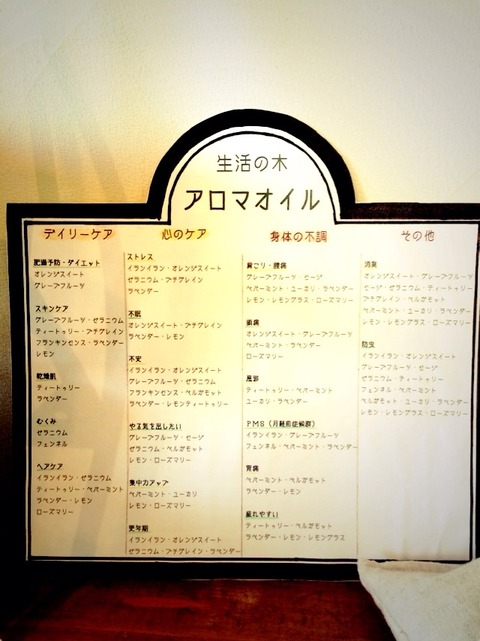 生活の木
アロマオイル
デイリーケア
肥満予防・ダイエット
オレンジスイート
グレープフルーツ
スキンケア
グレープフルーツ・ゼラニウム
ティートゥリー・プチグレイン
フランキンセンス・ラベンダー
レモン
乾燥肌
ティートゥリー
ラベンダー
むくみ
ゼラニウム
フェンネル
ヘアケア
イランイラン・ゼラニウム
ティートゥリー・ペパーミント
ラベンダー・レモン
ローズマリー
心のケア
ストレス
イランイラン・オレンジスイート
ゼラニウム・プチグレイン
ラベンダー
不眠
オレンジスイート・プチグレイン
ラベンダー
不安
イランイラン・オレンジスイート
グレープフルーツ・ゼラニウム
フランキンセンス・ベルガモット
ラベンダー・レモンティートゥリー
やる気を出したい
グレープフルーツ・セージ
ゼラニウム・ベルガモット
レモン・ローズマリー
集中力アップ
ペパーミント・ユーカリ
レモン・ローズマリー
更年期
イランイラン・オレンジスイート
ゼラニウム・プチグレイン・ラベンダー
身体の不調
肩こり・腰痛
グレープフルーツ・セージ
ペパーミント・ユーカリ・ラベンダー
レモン・レモングラス・ローズマリー
頭痛
オレンジスイート・グレープフルーツ
ペパーミント・ラベンダー
ローズマリー
風邪
ティートゥリー・ペパーミント
ユーカリ・ラベンダー
PMS(月経前症候群)
イランイラン・グレープフルーツ
フェンネル・ラベンダー
胃痛
ペパーミント・ベルガモット
ラベンダー・レモン
疲れやすい
ティートゥリー・ベルガモット
ラベンダー・レモン・レモングラス
その他
消臭
オレンジスイート・グレープフルーツ
セージ・ゼラニウム・ティートゥリー
プチグレイン・ベルガモット
ペパーミント・ユーカリ・ラベンダー
レモン・レモングラス・ローズマリー
防虫
イランイラン・オレンジスイート
グレープフルーツ・セージ
ゼラニウム・ティートゥリー
フェンネル・ペパーミント
ベルガモット・ユーカリ・ラベンダー
レモン・レモングラス・ローズマリー